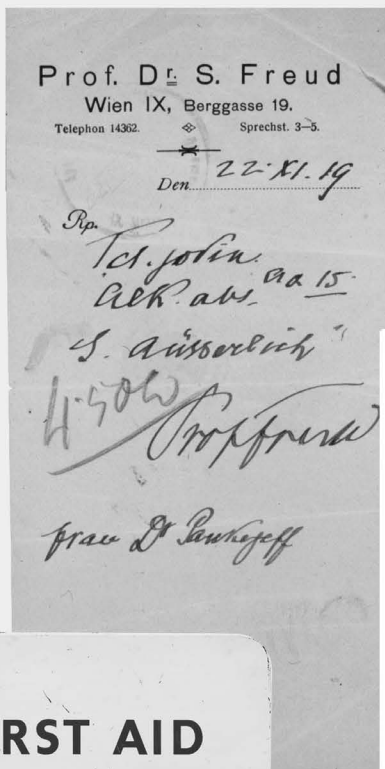 Prof. Dr. S. Freud
Wien IX, Berggasse 19.
Telephon 14362. Sprechst. 3–5.
Den 22. XI. 19
Rp.
Tct. jodin.
Alk. abs. aa 15.
S. Äusserlich
450
Prof Freud
Frau Dr Pankejeff
RST AID